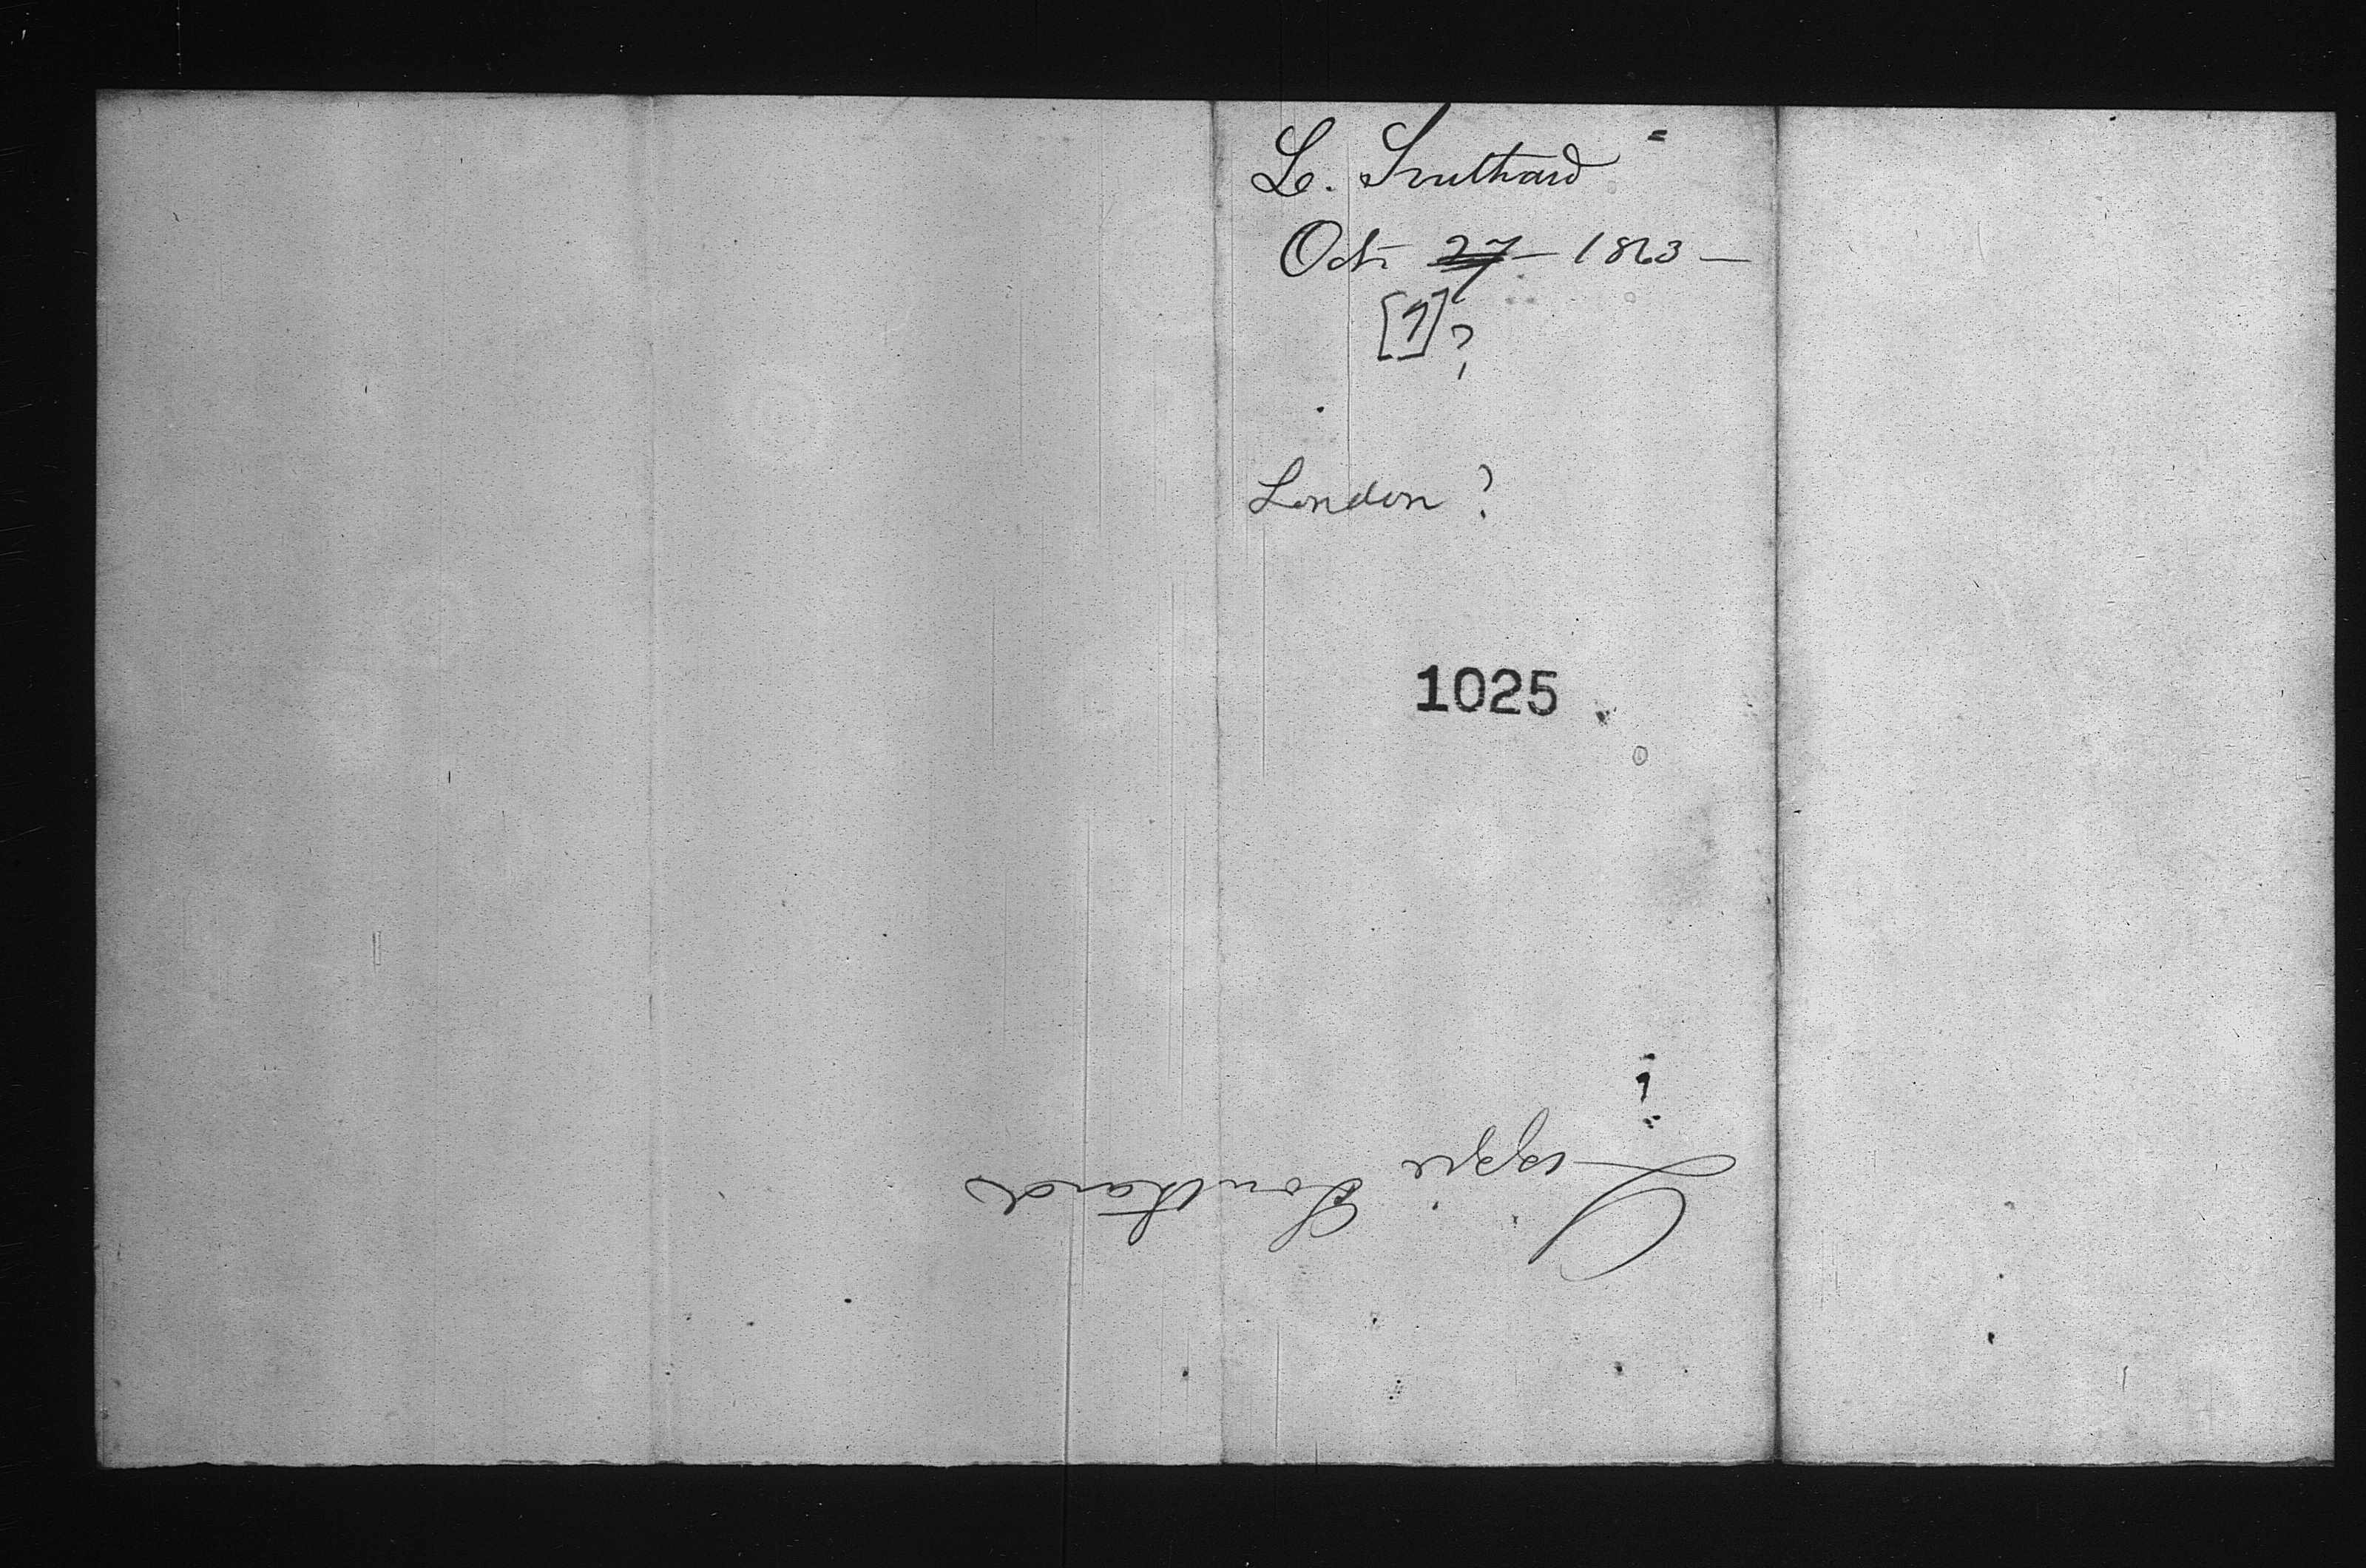 L. Southard
Oct. 27 – 1863 –
[1]?
London ?
1025
Lizzie Southard